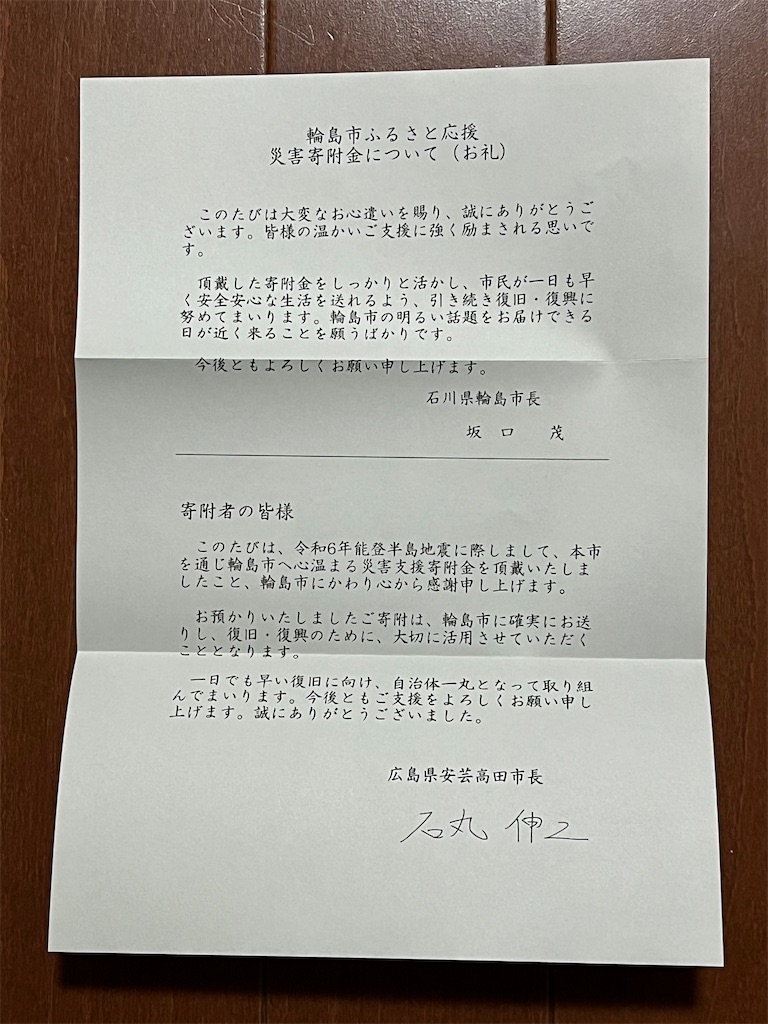 輪島市ふるさと応援
災害寄附金について（お礼）
このたびは大変なお心遣いを賜り、誠にありがとうご
ざいます。皆様の温かいご支援に強く励まされる思いで
す。
頂戴した寄附金をしっかりと活かし、市民が一日も早
く安全安心な生活を送れるよう、引き続き復旧・復興に
努めてまいります。輪島市の明るい話題をお届けできる
日が近く来ることを願うばかりです。
今後ともよろしくお願い申し上げます。
石川県輪島市長
坂　口　　茂
寄附者の皆様
このたびは、令和6年能登半島地震に際しまして、本市
を通じ輪島市へ心温まる災害支援寄附金を頂戴いたしま
したこと、輪島市にかわり心から感謝申し上げます。
お預かりいたしましたご寄附は、輪島市に確実にお送
りし、復旧・復興のために、大切に活用させていただく
こととなります。
一日でも早い復旧に向け、自治体一丸となって取り組
んでまいります。今後ともご支援をよろしくお願い申し
上げます。誠にありがとうございました。
広島県安芸高田市長
石丸 伸二